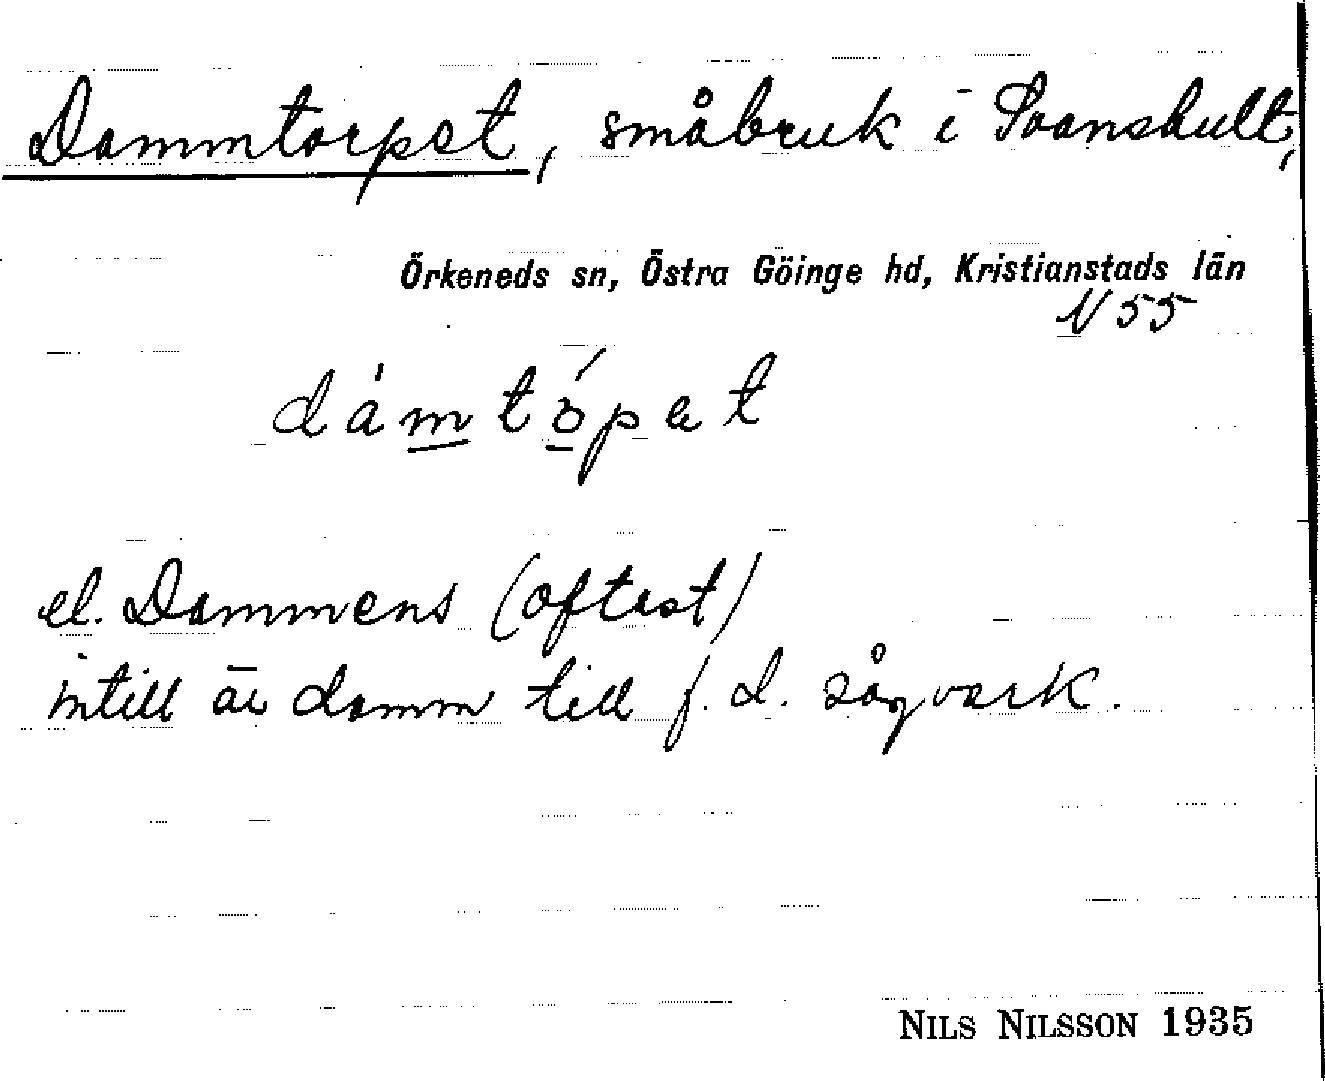 Dammtorpet, småbruk i Svanshult,
Örkeneds sn, Östra Göinge hd, Kristianstads län
N 55
dámtópet
el. Dammens (oftast)
intill är damm till f. d. sågverk.
NILS NILSSON 1935